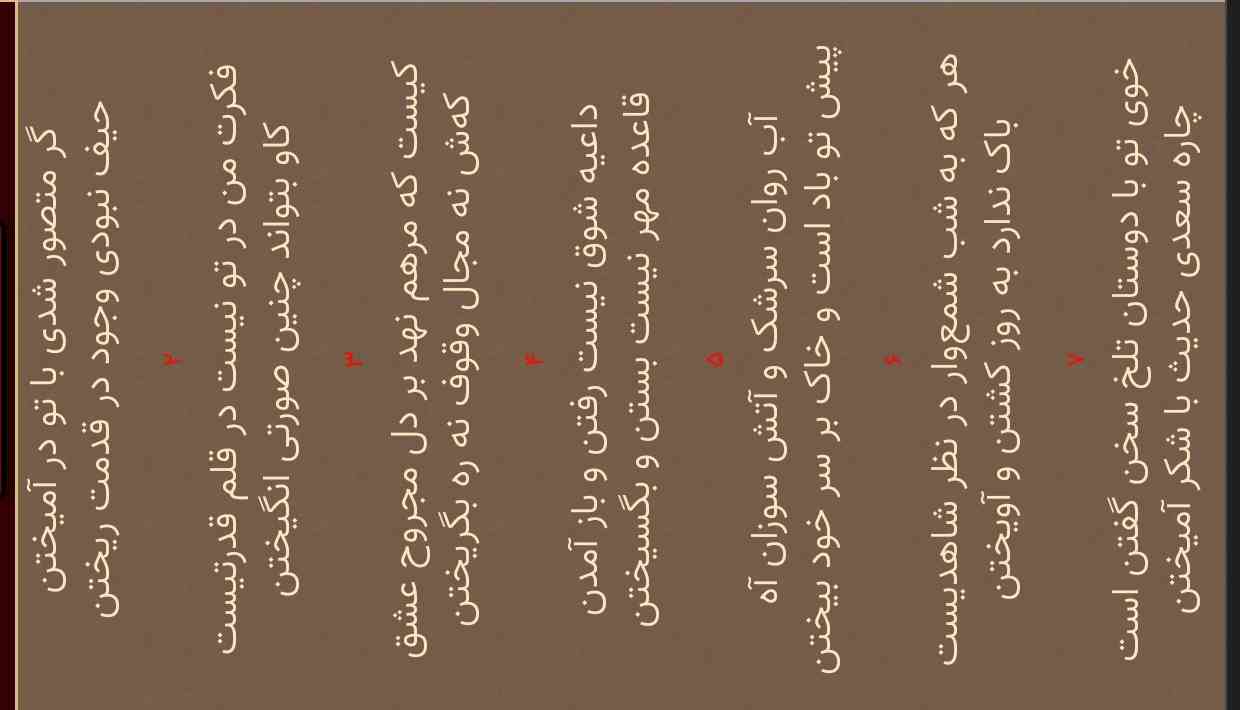 گر متصور شدی با تو در آمیختن
حیف نبودی وجود در قدمت ریختن
۲
فکرت من در تو نیست در قلم قدرتیست
کاو بتواند چنین صورتی انگیختن
۳
کیست که مرهم نهد بر دل مجروح عشق
که‌ش نه مجال وقوف نه ره بگریختن
۴
داعیه شوق نیست رفتن و باز آمدن
قاعده مهر نیست بستن و بگسیختن
۵
آب روان سرشک و آتش سوزان آه
پیش تو باد است و خاک بر سر خود بیختن
۶
هر که به شب شمع‌وار در نظر شاهدیست
باک ندارد به روز کشتن و آویختن
۷
خوی تو با دوستان تلخ سخن گفتن است
چاره سعدی حدیث با شکر آمیختن